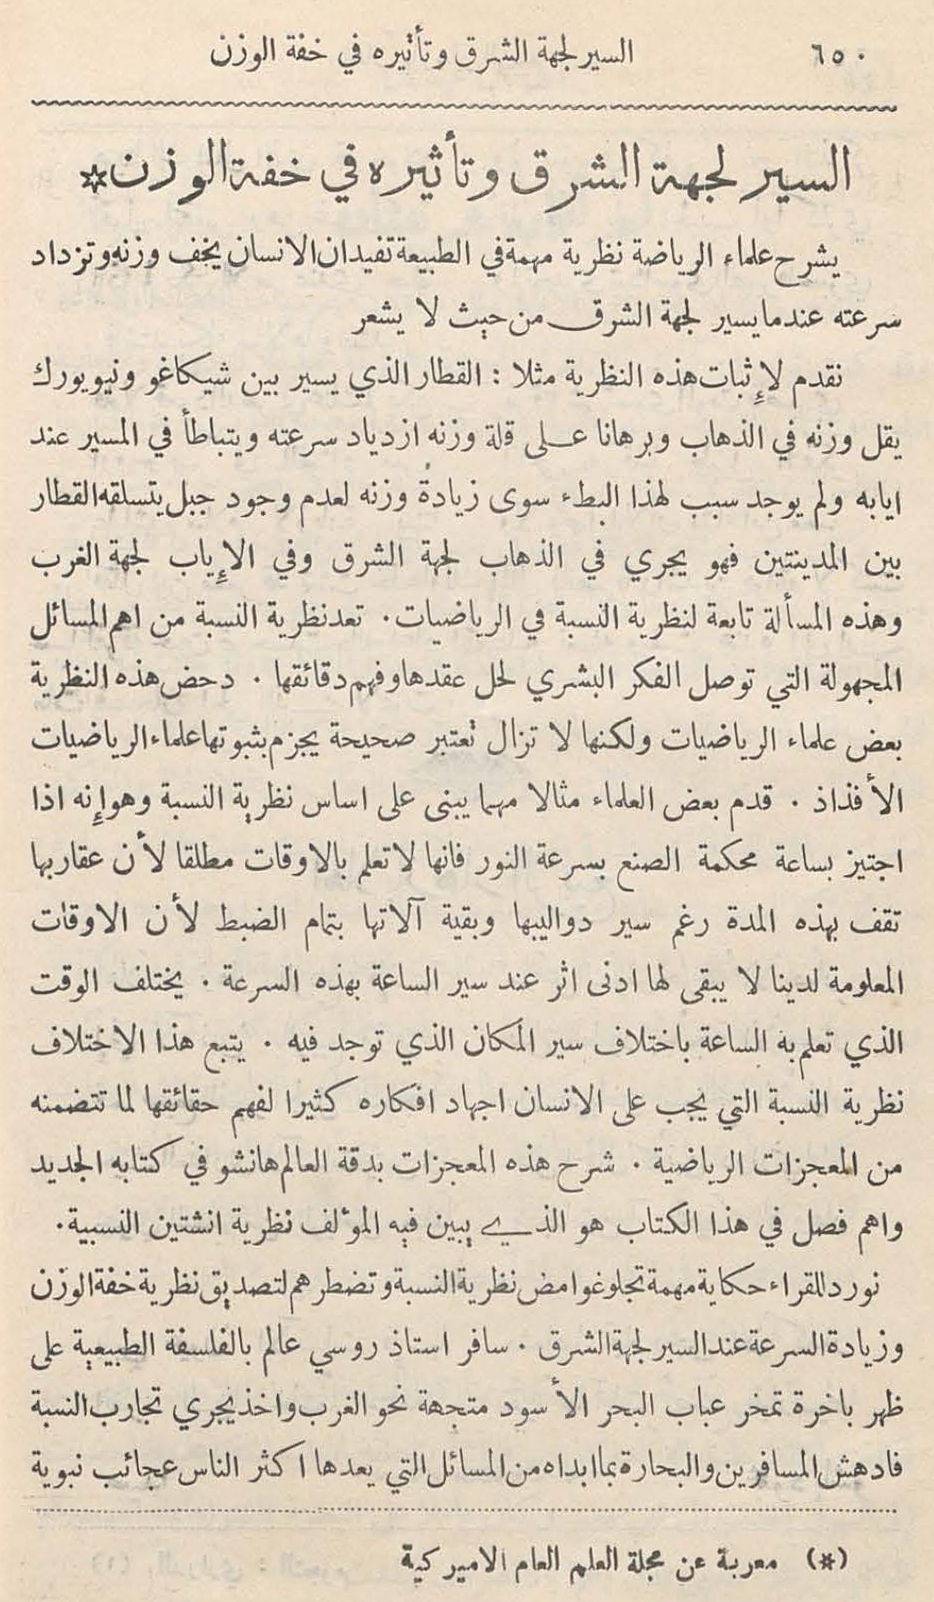 ٦٥٠
السير لجهة الشرق وتأثيره في خفة الوزن
السير لجهة الشرق وتأثيره في خفة الوزن *
يشرح علماء الرياضة نظرية مهمة في الطبيعة تفيد ان الانسان يخف وزنه وتزداد
سرعته عندما يسير لجهة الشرق من حيث لا يشعر
نقدم لإثبات هذه النظرية مثلا : القطار الذي يسير بين شيكاغو ونيويورك
يقل وزنه في الذهاب وبرهانا على قلة وزنه ازدياد سرعته ويتباطأ في المسير عند
ايابه ولم يوجد سبب لهذا البطء سوى زيادة وزنه لعدم وجود جبل يتسلقه القطار
بين المدينتين فهو يجري في الذهاب لجهة الشرق وفي الإياب لجهة الغرب
وهذه المسألة تابعة لنظرية النسبة في الرياضيات . تعد نظرية النسبة من اهم المسائل
المجهولة التي توصل الفكر البشري لحل عقدها وفهم دقائقها . دحض هذه النظرية
بعض علماء الرياضيات ولكنها لا تزال تعتبر صحيحة يجزم بثبوتها علماء الرياضيات
الأفذاذ . قدم بعض العلماء مثالا مهما يبنى على اساس نظرية النسبة وهو إنه اذا
اجتيز بساعة محكمة الصنع بسرعة النور فانها لا تعلم بالاوقات مطلقا لأن عقاربها
تقف بهذه المدة رغم سير دواليبها وبقية آلاتها بتمام الضبط لأن الاوقات
المعلومة لدينا لا يبقى لها ادنى اثر عند سير الساعة بهذه السرعة . يختلف الوقت
الذي تعلم به الساعة باختلاف سير المكان الذي توجد فيه . يتبع هذا الاختلاف
نظرية النسبة التي يجب على الانسان اجهاد افكاره كثيرا لفهم حقائقها لما تتضمنه
من المعجزات الرياضية . شرح هذه المعجزات بدقة العالم هانشو في كتابه الجديد
واهم فصل في هذا الكتاب هو الذي يبين فيه المؤلف نظرية انشتين النسبية .
نورد للقراء حكاية مهمة تجلو غوامض نظرية النسبة وتضطرهم لتصديق نظرية خفة الوزن
وزيادة السرعة عند السير لجهة الشرق . سافر استاذ روسي عالم بالفلسفة الطبيعية على
ظهر باخرة تمخر عباب البحر الأسود متجهة نحو الغرب واخذ يجري تجارب النسبة
فادهش المسافرين والبحارة بما ابداه من المسائل التي يعدها اكثر الناس عجائب نبوية
(*) معربة عن مجلة العلم العام الاميركية